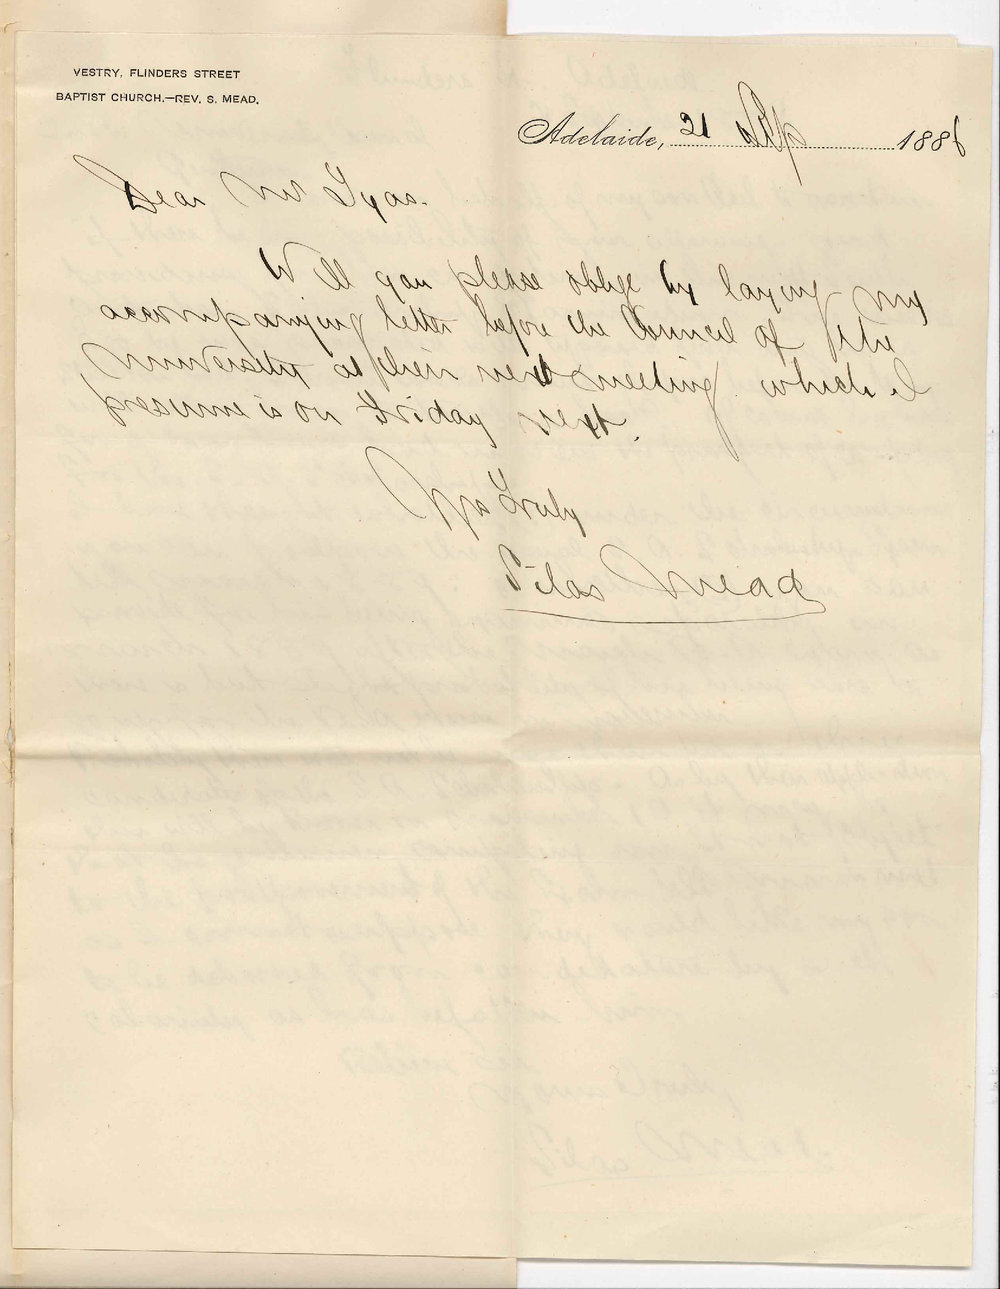 VESTRY, FLINDERS STREET
BAPTIST CHURCH.—REV. S. MEAD.
Adelaide, 21 Sep 1886
Dear Mr Tyas.
Will you please oblige by laying my
accompanying letter before the Council of the
University at their next meeting which I
presume is on Friday next.
Yrs truly
Silas Mead